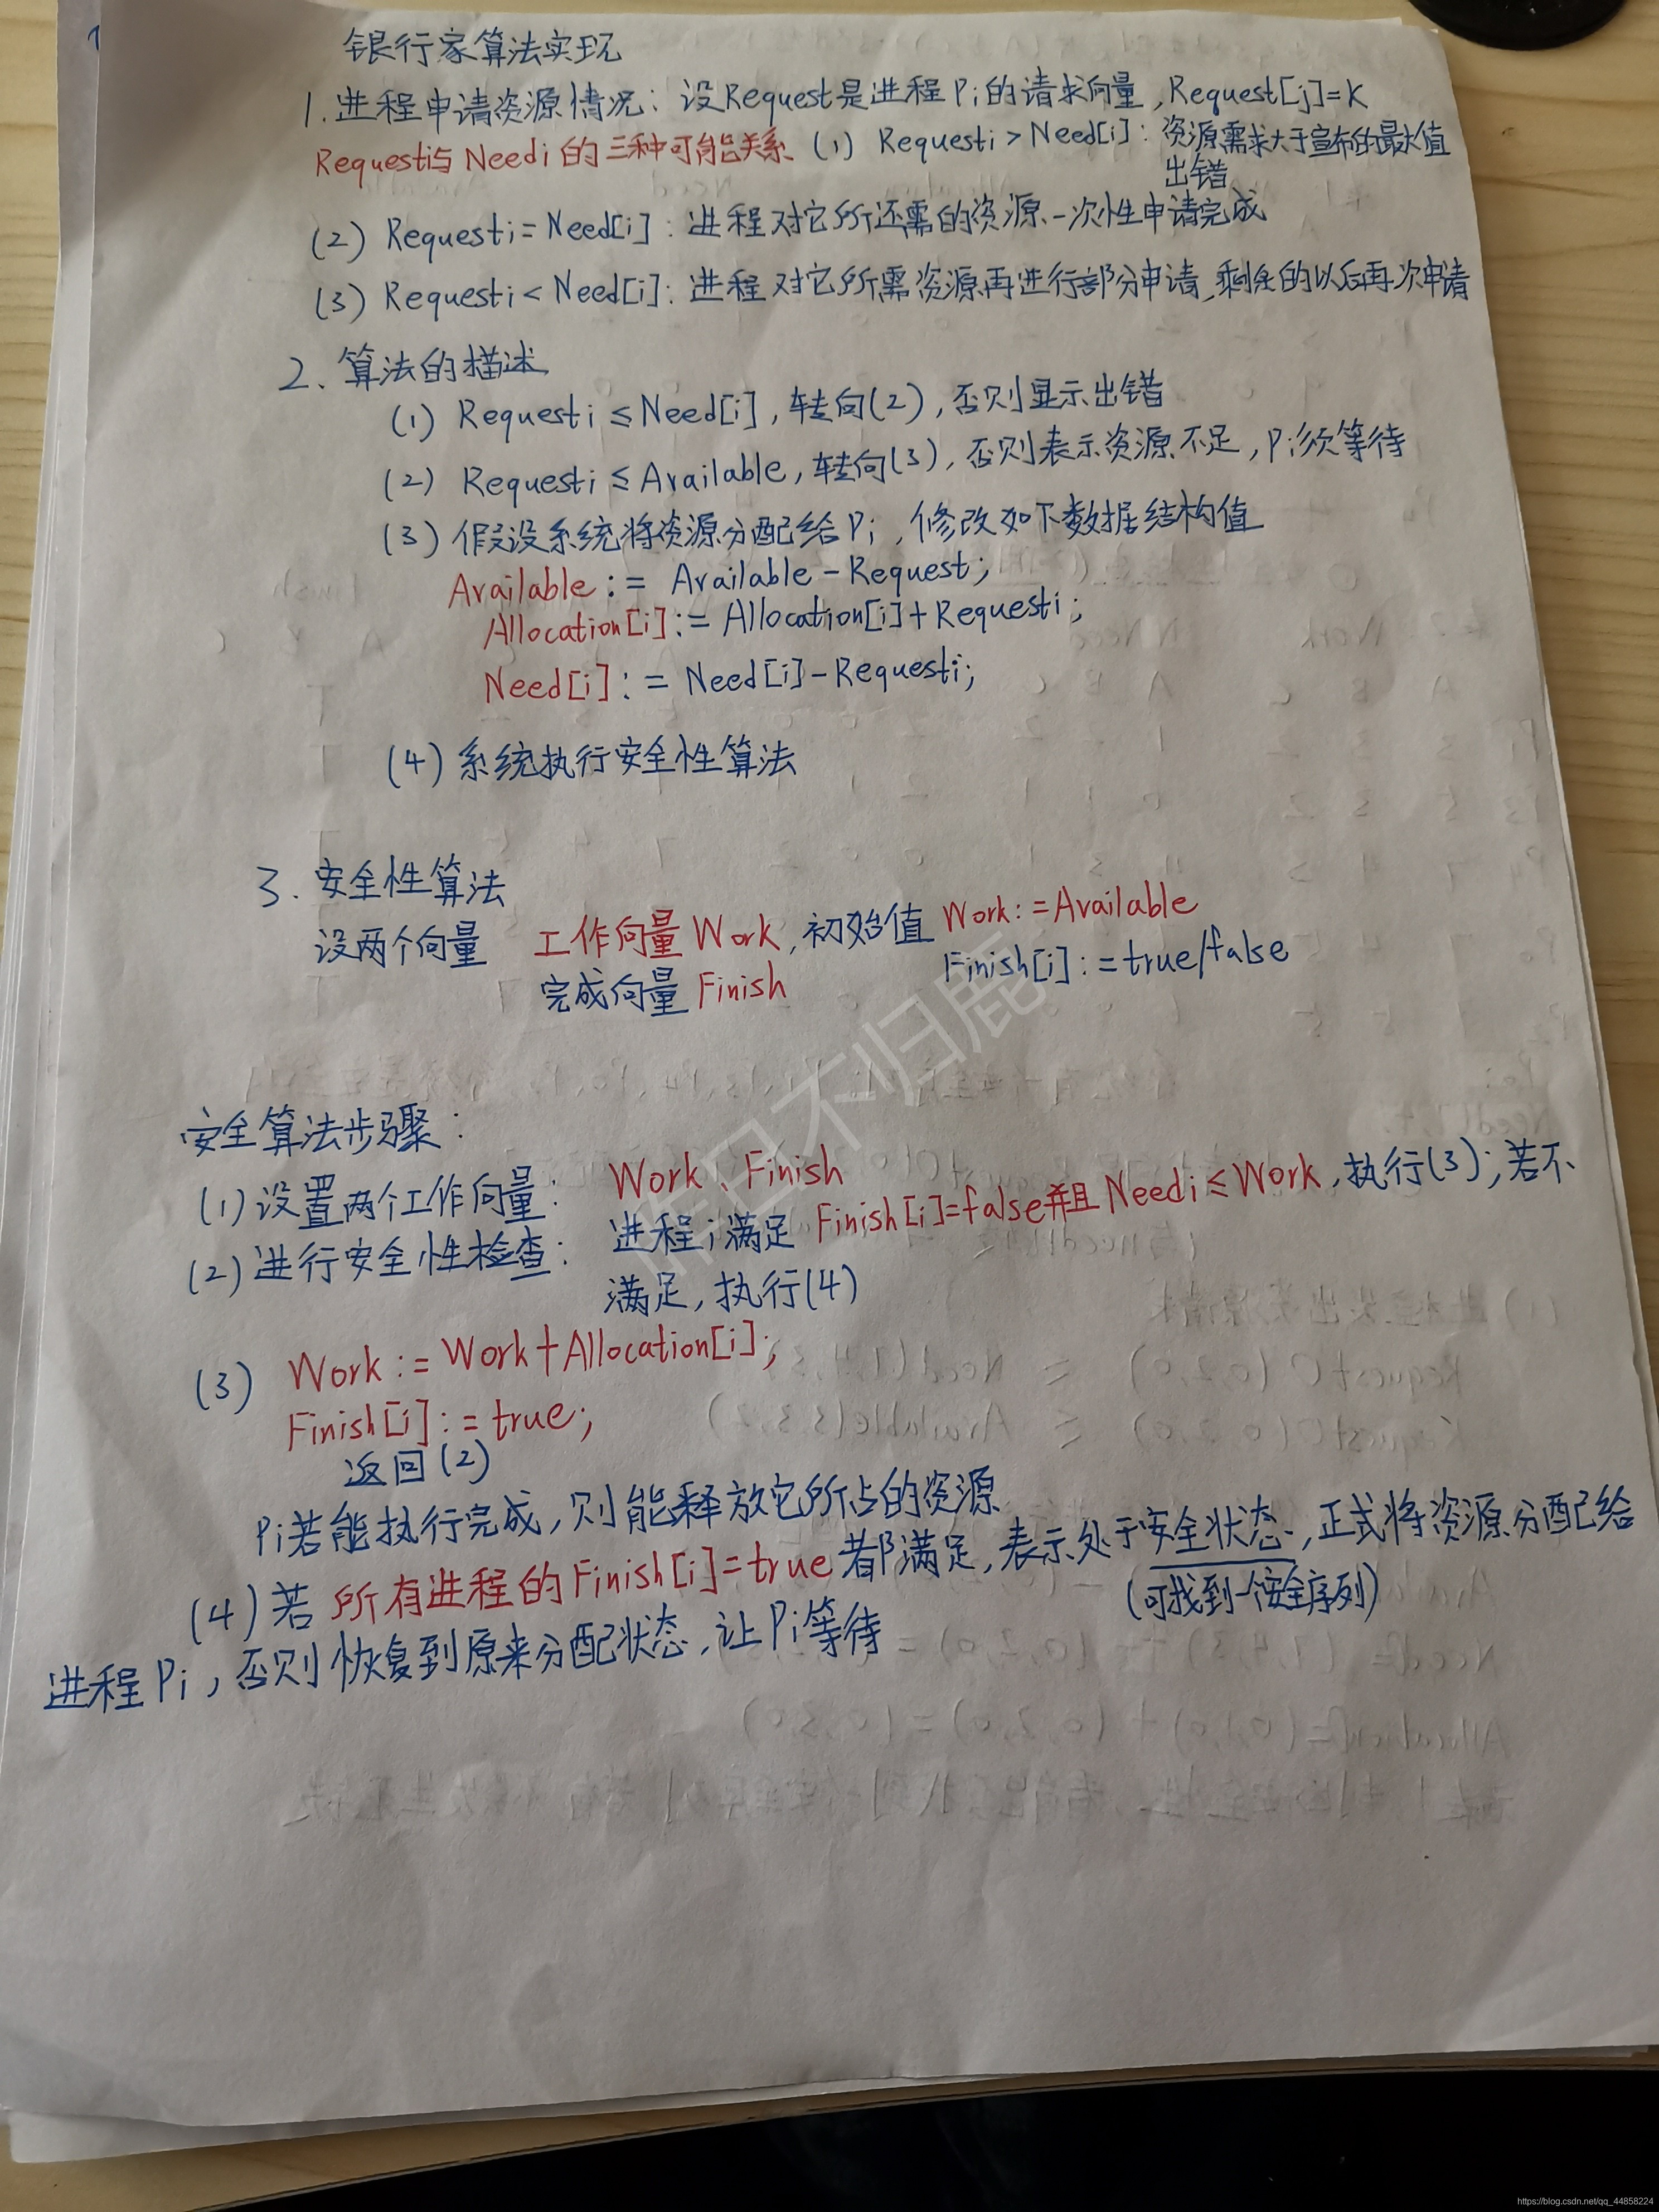 银行家算法实现
1.进程申请资源情况：设Request是进程Pi的请求向量，Request[j]=K
Requesti与Needi的三种可能关系 (1) Requesti > Need[i]：资源需求大于宣布的最大值
出错
(2) Requesti = Need[i]：进程对它所还需的资源一次性申请完成
(3) Requesti < Need[i]：进程对它所需资源再进行部分申请，剩余的以后再次申请
2、算法的描述
(1) Requesti ≤ Need[i]，转向(2)，否则显示出错
(2) Requesti ≤ Available，转向(3)，否则表示资源不足，Pi须等待
(3) 假设系统将资源分配给Pi，修改如下数据结构值
Available := Available - Request;
Allocation[i] := Allocation[i] + Requesti;
Need[i] := Need[i] - Requesti;
(4) 系统执行安全性算法
3. 安全性算法
设两个向量 工作向量Work，初始值 Work := Available
完成向量 Finish Finish[i] := true/false
安全算法步骤：
(1) 设置两个工作向量： Work、Finish
(2) 进行安全性检查： 进程i满足 Finish[i]=false并且Needi ≤ Work，执行(3)；若不
满足，执行(4)
(3) Work := Work + Allocation[i];
Finish[i] := true;
返回(2)
Pi若能执行完成，则能释放它所占的资源
(4) 若 所有进程的Finish[i]=true都满足，表示处于安全状态，正式将资源分配给
(可找到一个安全序列)
进程Pi，否则恢复到原来分配状态，让Pi等待
不归鹿
https://blog.csdn.net/qq_44858224